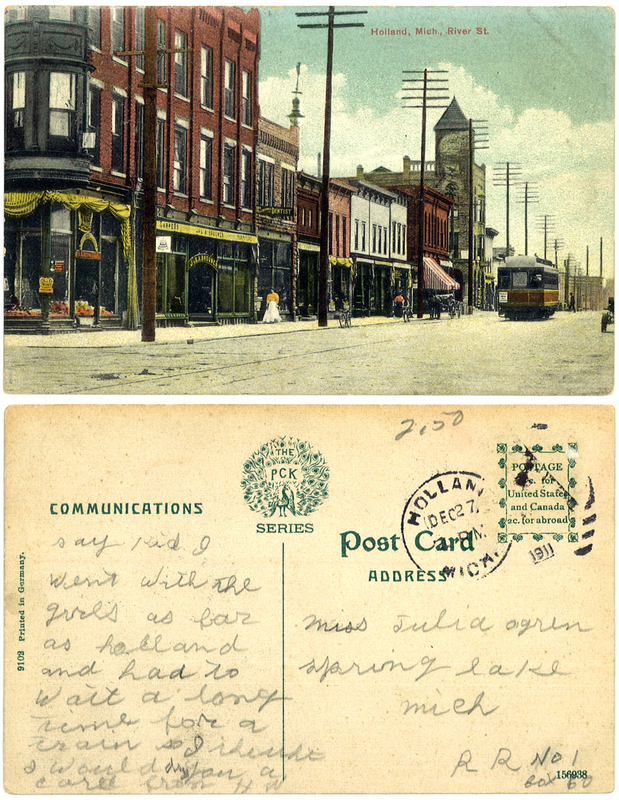 Holland, Mich., River St.
DENTIST
2.50
THE
PCK
SERIES
COMMUNICATIONS
POSTAGE
1c. for
United States
and Canada
2c. for abroad
HOLLAND
DEC 27
MICH.
1911
Post Card
ADDRESS
say Kid I
went with the
girls as far
as holland
and had to
wait a long
time for a
train so I
I would you a
card from
miss Julia ogren
spring lake
mich
R R No 1
Box 60
156938
9102 Printed in Germany.